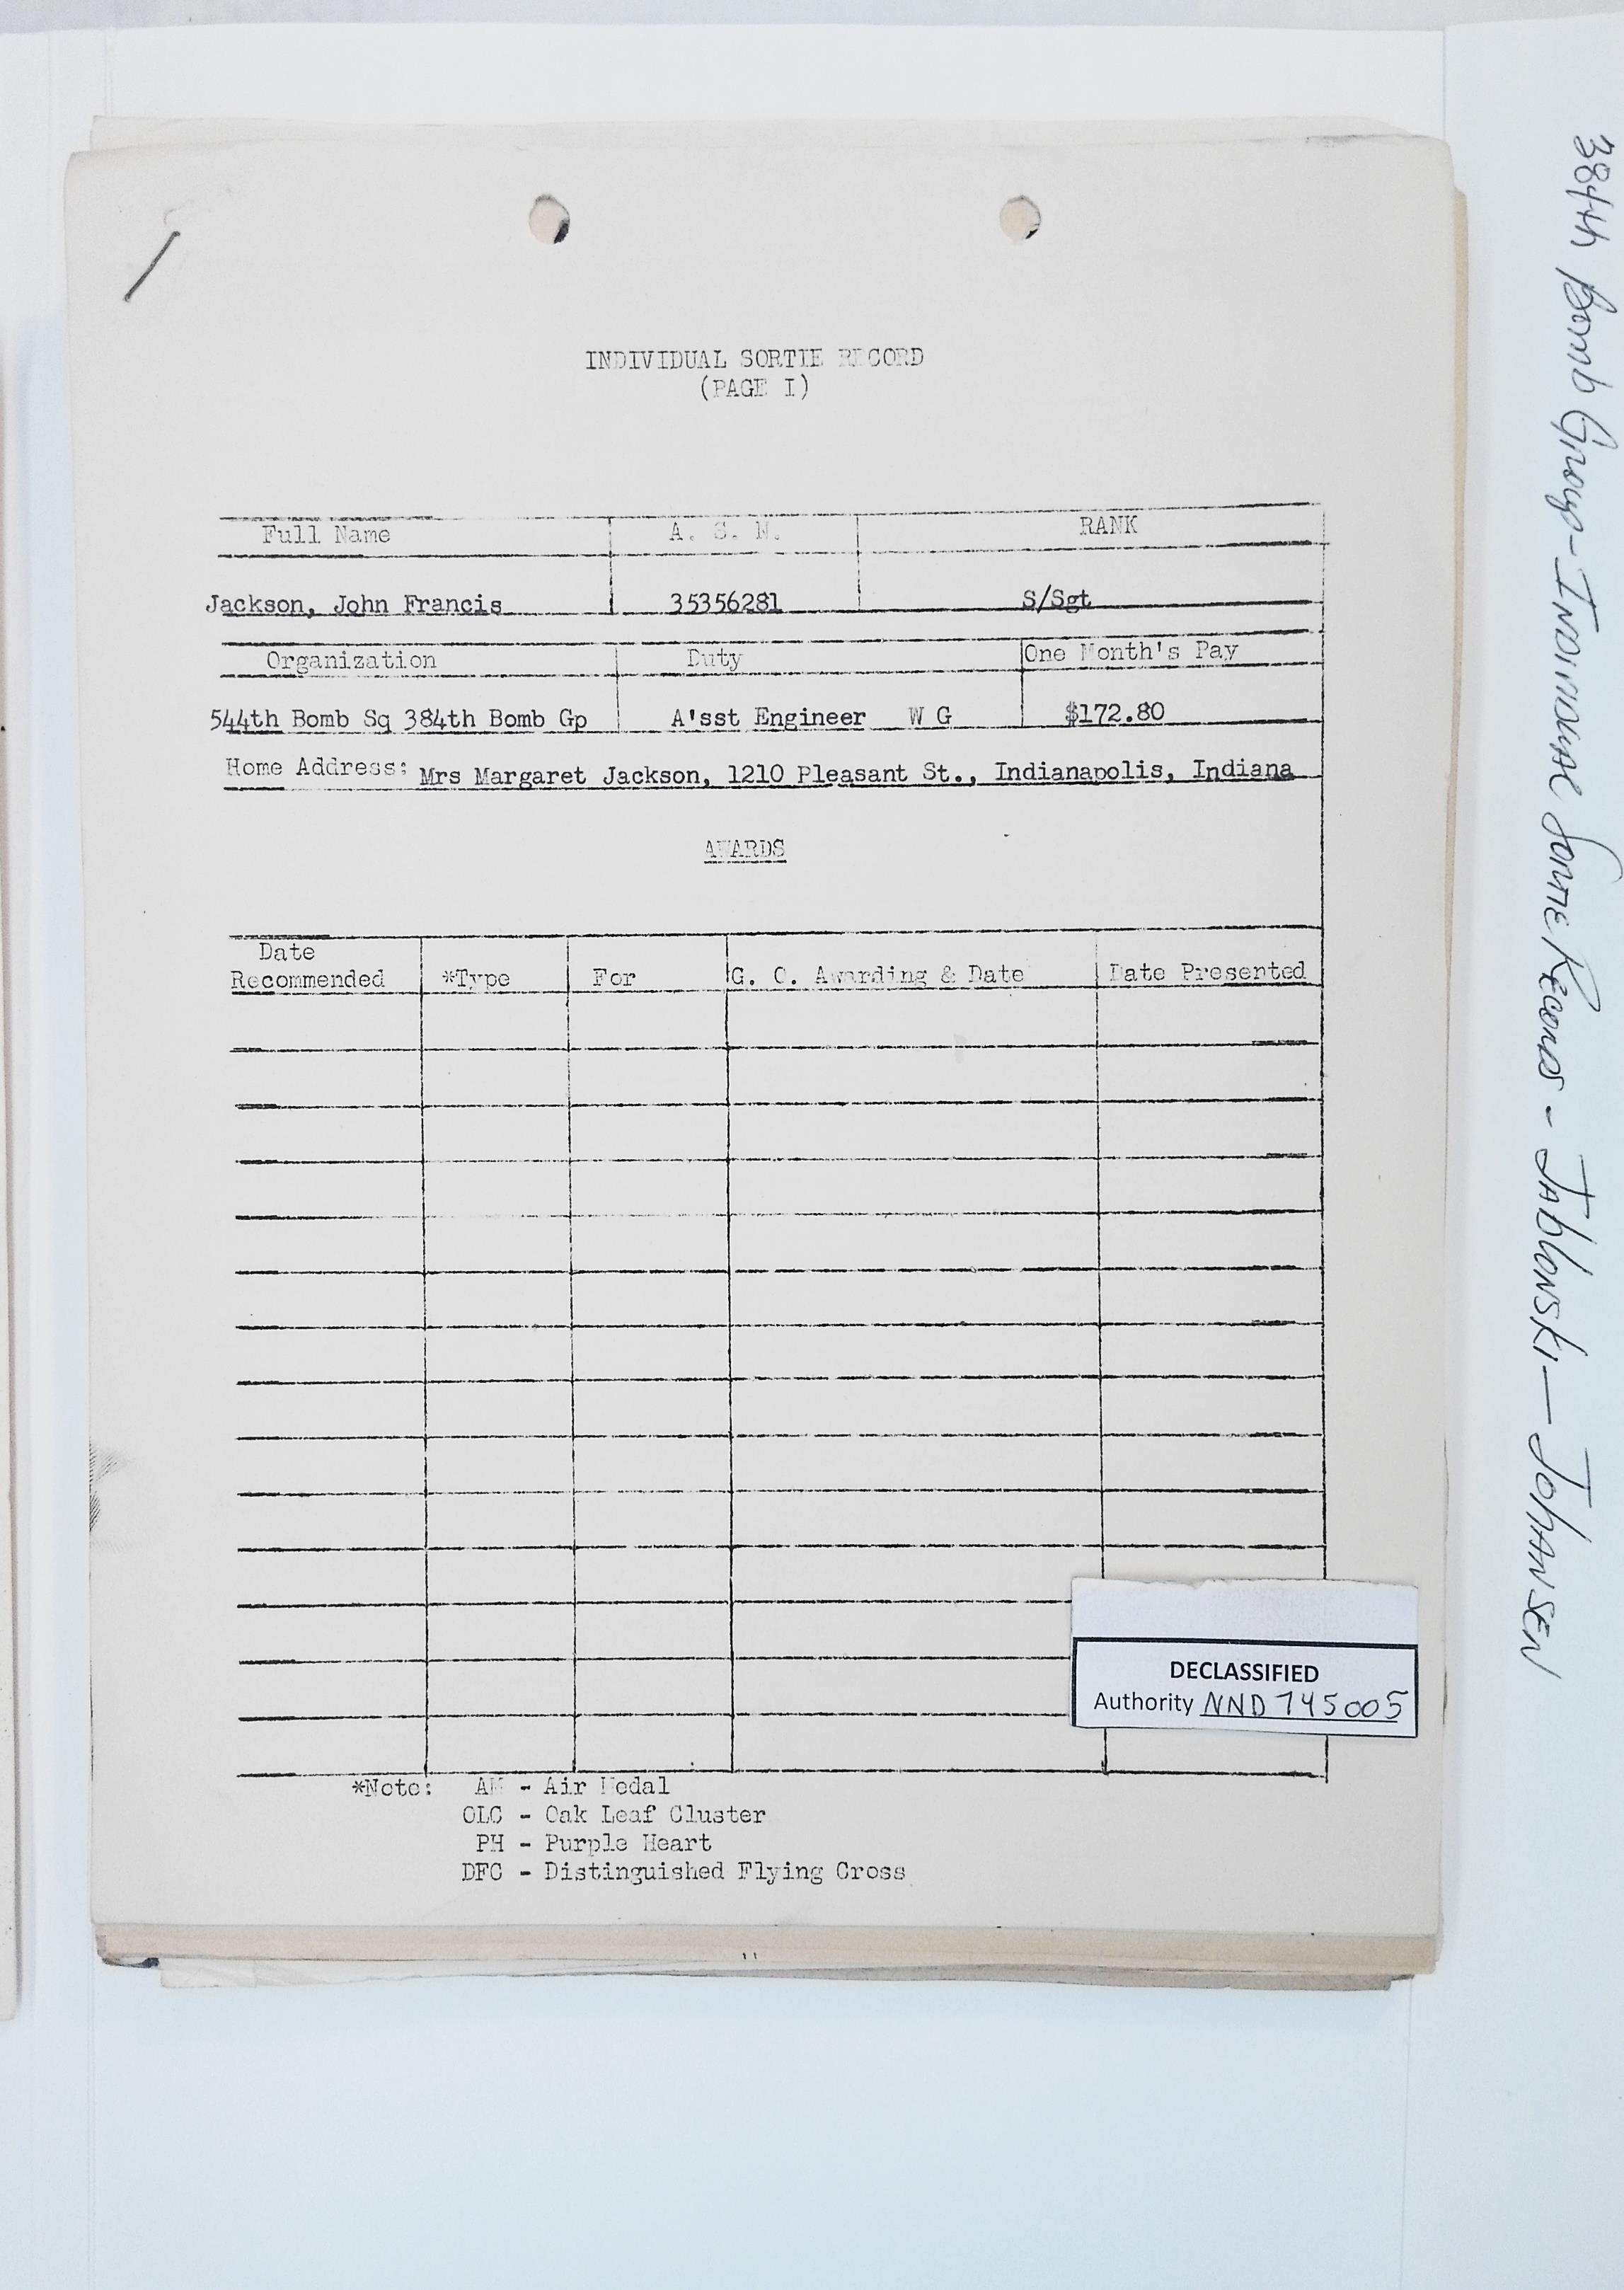 INDIVIDUAL SORTIE RECORD
(PAGE I)
Full Name A. S. N. RANK
Jackson, John Francis 35356281 S/Sgt
Organization Duty One Month's Pay
544th Bomb Sq 384th Bomb Gp A'sst Engineer W G $172.80
Home Address: Mrs Margaret Jackson, 1210 Pleasant St., Indianapolis, Indiana
AWARDS
Date
Recommended *Type For G. O. Awarding & Date Date Presented
DECLASSIFIED
Authority NND 745005
*Note: AM - Air Medal
OLC - Oak Leaf Cluster
PH - Purple Heart
DFC - Distinguished Flying Cross
384th Bomb Group - Individual Sortie Records - Jablonski — Johansen